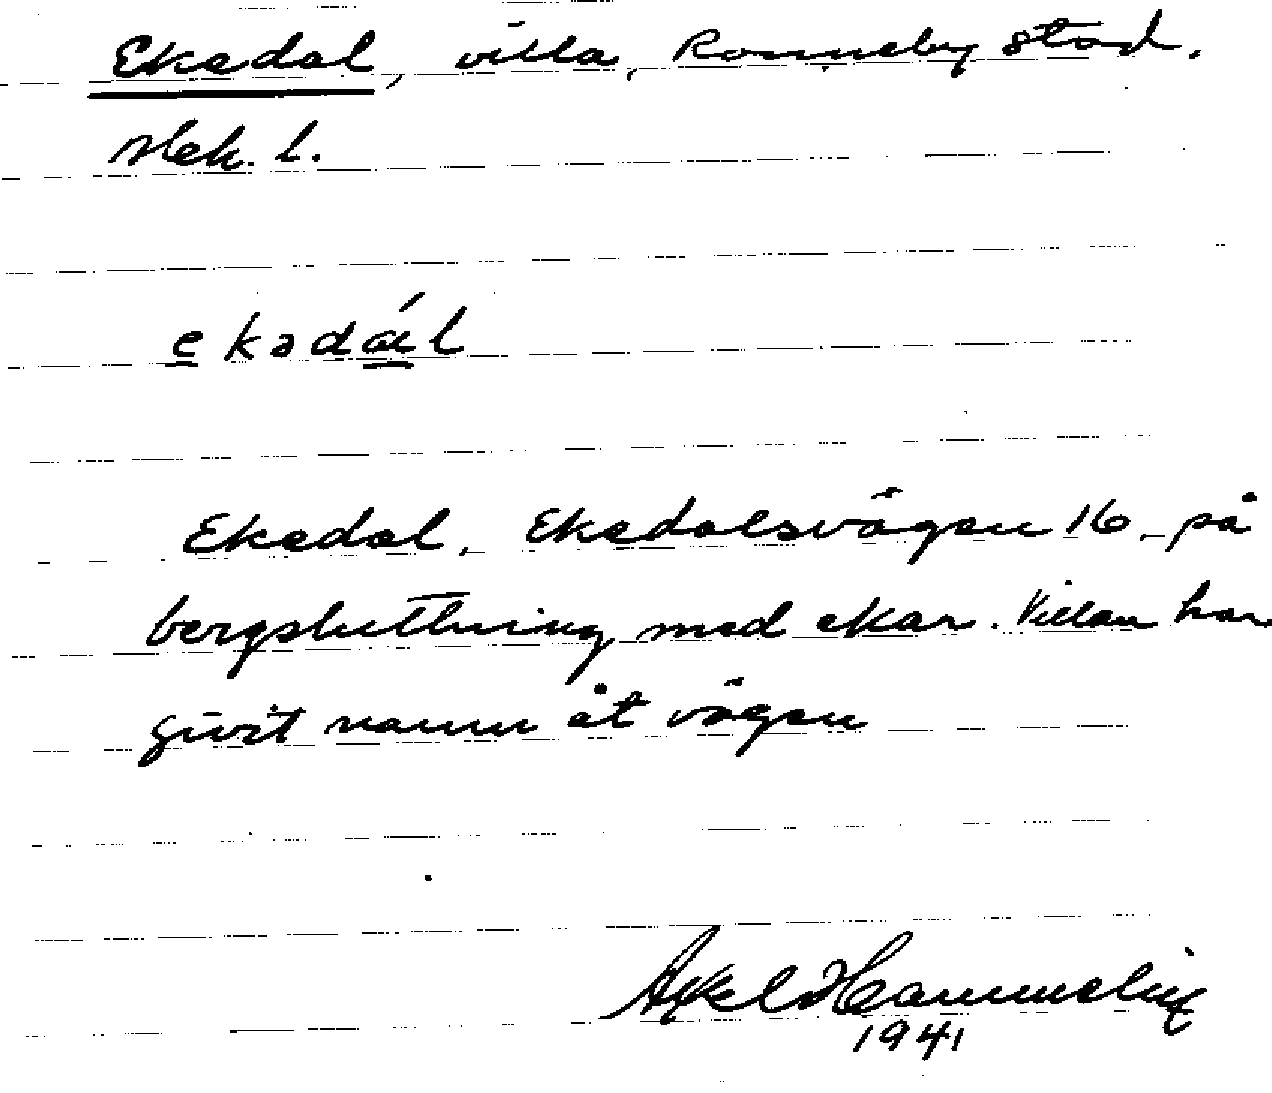 Ekedal, villa, Ronneby stad.
Mek. l.
ekədál
Ekedal, Ekedalsvägen 16, på
bergsluttning med ekar. Villan har
givit namn åt vägen
Axel Hammelin
1941